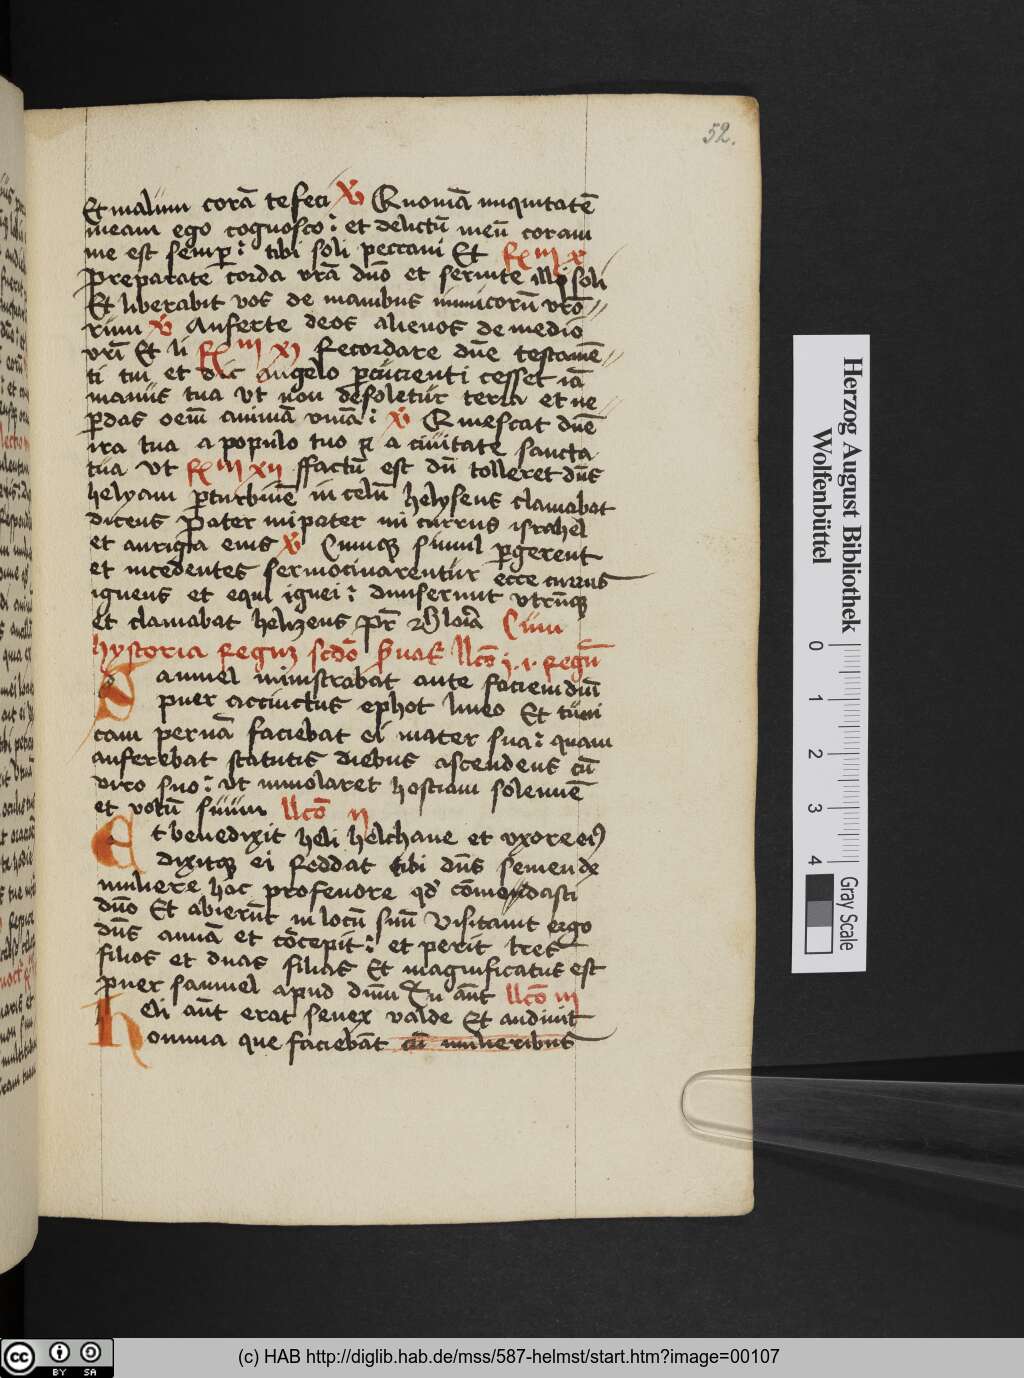 52.
Et malum corā te feci V̄ Quoniā iniquitatē
meam ego cognosco : et delictū meū coram
me est semp̱ : tibi soli peccaui Et R̄ m x
Preparate corda vrā dno et seruite illi soli
Et liberabit vos de manibus inimicorū vro
rum V̄ Auferte deos alienos de medio
vri Et li R̄ m xi Recordare dne testamē
ti tui et dic angelo p̱cucienti cesset iā
manus tua Vt non desoletur terra et ne
p̱das oem animā viuā : V̄ Quiescat dne
ira tua a populo tuo et a ciuitate sancta
tua Vt R̄ m xii ffactū est dū tolleret dns
helyam p̱ turbinē in celū helyseus clamabat
dicens Pater mi pater mi currus israhel
et auriga eius V̄ Cumq simul p̱gerent
et incedentes sermocinarentur ecce currus
igneus et equi ignei : diuiserunt vtrūq
et clamabat helizeus Pr̄ Gloria Cum
hystoria Regum scdo llco i . i . Regū
Samuel ministrabat ante faciem dm̄
puer accinctus ephot lineo Et tuni
cam peruā faciebat ei mater sua : quam
auferebat statutis diebus ascendens cū
viro suo : Vt immolaret hostiam solennē
et votū suum llco ii
Et benedixit heli helchane et vxore ei9
dixitq ei Reddat tibi dns semen de
muliere hac pro fenore qd cōmendasti
dno Et abierūt in locū suū Visitauit ergo
dns annā et cōcepit : et perit tres
filios et duas filias Et magnificatus est
puer samuel apud dnm Tu aūt llco iii
Heli aūt erat senex valde Et audiuit
omnia que faciebāt cū mulieribus
Herzog August Bibliothek
Wolfenbüttel
0 1 2 3 4
Gray Scale
cc BY SA
(c) HAB http://diglib.hab.de/mss/587-helmst/start.htm?image=00107